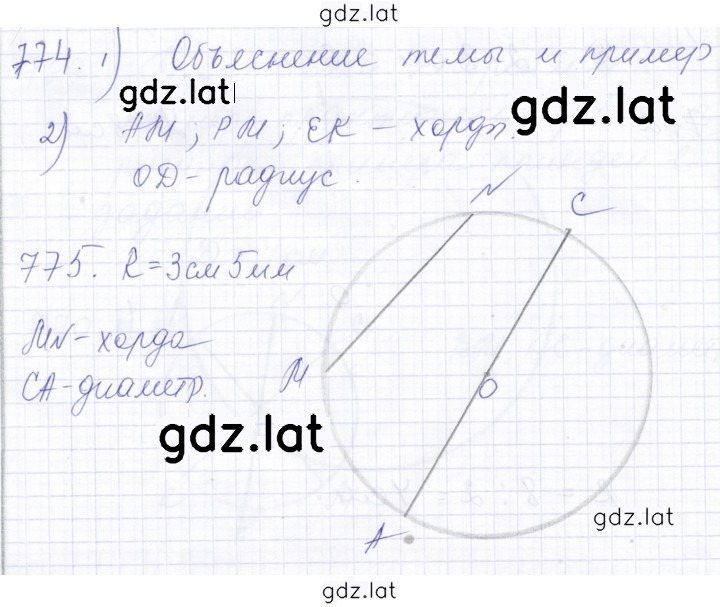 gdz.lat
774. 1) Объяснение темы и пример
gdz.lat
gdz.lat
2) АМ; РМ; ЕК – хорды.
OD – радиус.
N
C
775. R = 3см 5мм
MN – хорда
M
CA – диаметр.
O
gdz.lat
gdz.lat
A
gdz.lat